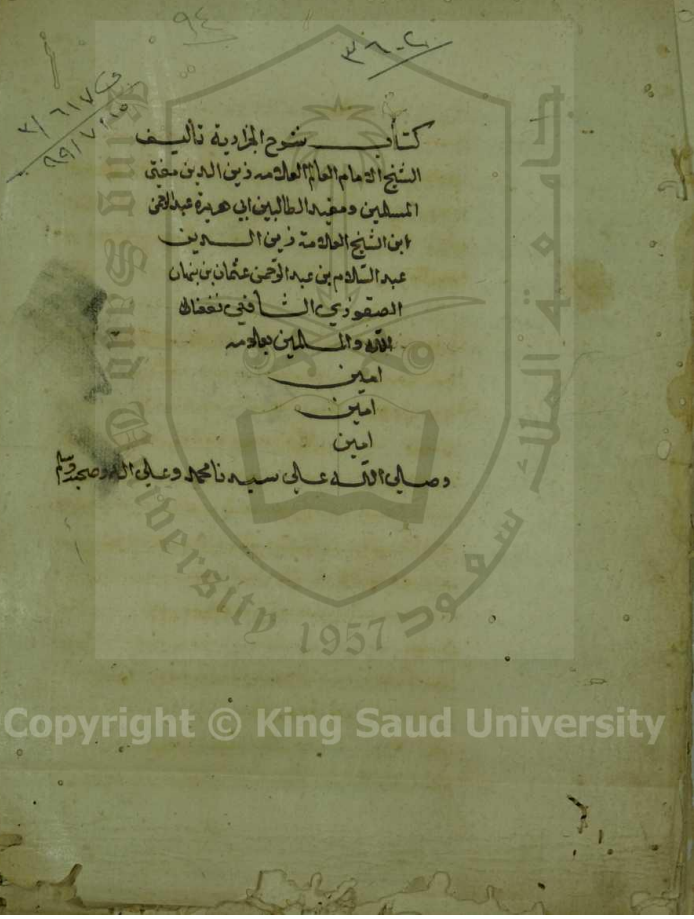 ٩٤
٣٦٠٢
ف ٢١٦١٧
كتاب شرح الجرادية تأليف
الشيخ الامام العالم العلامه زين الدين مفتى
المسلمين ومفيد الطالبين ابي هريرة عبدالرحمن
ابن الشيخ العلامة زين الدين
عبد السلام بن عبد الرحمن عثمان بن بنهان
الصفوري الشافعي نفعنا
الله والمسلمين بعلومه
امين
امين
امين
وصلى الله على سيدنا محمد وعلى اله وصحبه وسلم
جامعة الملك سعود
King Saud University 1957
Copyright © King Saud University